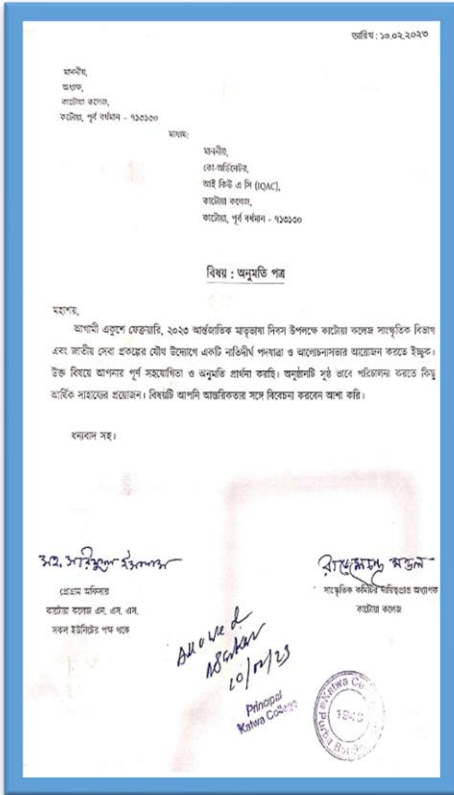 তারিখ : ১০.০২.২০২৩
মাননীয়,
অধ্যক্ষ,
কাটোয়া কলেজ,
কাটোয়া, পূর্ব বর্ধমান - ৭১৩১৩০
মাধ্যম:
মাননীয়,
কো-অর্ডিনেটর,
আই কিউ এ সি (IQAC),
কাটোয়া কলেজ,
কাটোয়া, পূর্ব বর্ধমান - ৭১৩১৩০
বিষয় : অনুমতি পত্র
মহাশয়,
আগামী একুশে ফেব্রুয়ারি, ২০২৩ আর্ন্তজাতিক মাতৃভাষা দিবস উপলক্ষে কাটোয়া কলেজ সাংস্কৃতিক বিভাগ
এবং জাতীয় সেবা প্রকল্পের যৌথ উদ্যোগে একটি নাতিদীর্ঘ পদযাত্রা ও আলোচনাসভার আয়োজন করতে ইচ্ছুক।
উক্ত বিষয়ে আপনার পূর্ণ সহযোগিতা ও অনুমতি প্রার্থনা করছি। অনুষ্ঠানটি সুষ্ঠ ভাবে পরিচালনা করতে কিছু
আর্থিক সাহায্যের প্রয়োজন। বিষয়টি আপনি আন্তরিকতার সঙ্গে বিবেচনা করবেন আশা করি।
ধন্যবাদ সহ।
প্রোগ্রাম অফিসার
কাটোয়া কলেজ এন. এস. এস.
সকল ইউনিটের পক্ষ থকে
মণ্ডল
সাংস্কৃতিক কমিটির দায়িত্বপ্রাপ্ত অধ্যাপক
কাটোয়া কলেজ
Allowed
10/02/23
Principal
Katwa College
1948